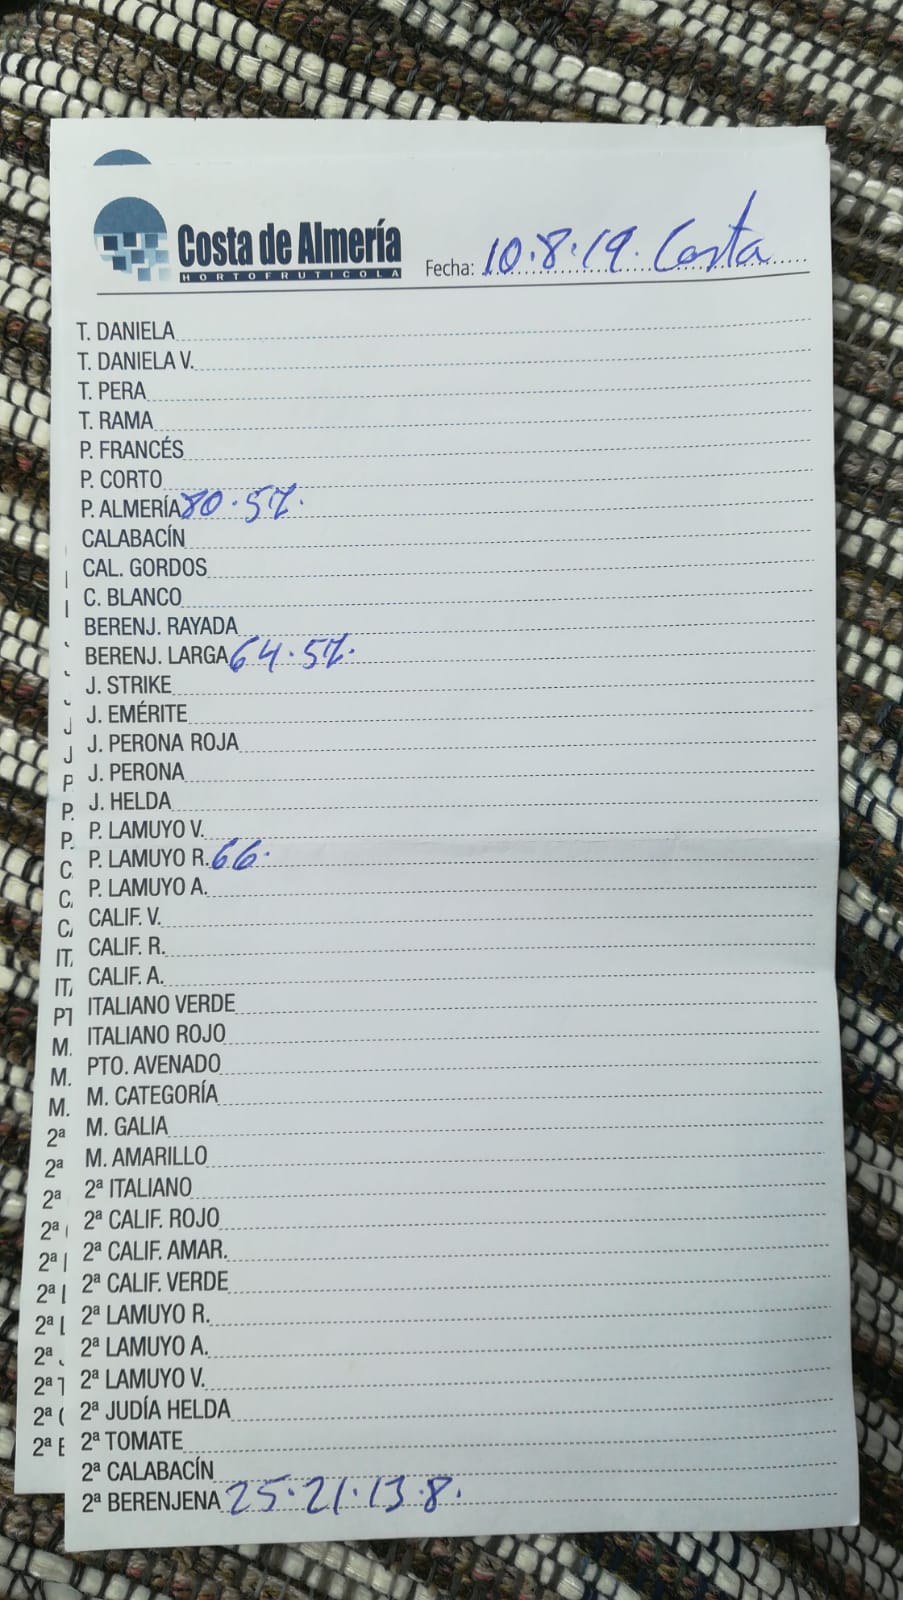 Costa de Almería
HORTOFRUTICOLA
Fecha: 10.8.19. Costa
T. DANIELA
T. DANIELA V.
T. PERA
T. RAMA
P. FRANCÉS
P. CORTO
P. ALMERÍA 80.57.
CALABACÍN
CAL. GORDOS
C. BLANCO
BERENJ. RAYADA
BERENJ. LARGA 64.57.
J. STRIKE
J. EMÉRITE
J. PERONA ROJA
J. PERONA
J. HELDA
P. LAMUYO V.
P. LAMUYO R. 66.
P. LAMUYO A.
CALIF. V.
CALIF. R.
CALIF. A.
ITALIANO VERDE
ITALIANO ROJO
PTO. AVENADO
M. CATEGORÍA
M. GALIA
M. AMARILLO
2ª ITALIANO
2ª CALIF. ROJO
2ª CALIF. AMAR.
2ª CALIF. VERDE
2ª LAMUYO R.
2ª LAMUYO A.
2ª LAMUYO V.
2ª JUDÍA HELDA
2ª TOMATE
2ª CALABACÍN
2ª BERENJENA 25.21.13.8.